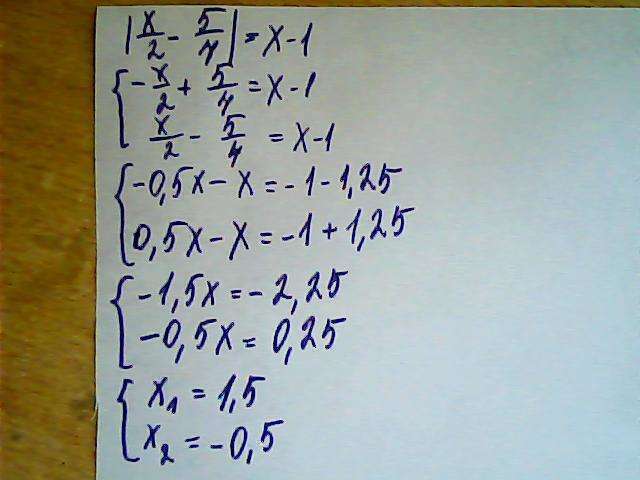 |x/2 - 5/4| = x-1
{ -x/2 + 5/4 = x-1
x/2 - 5/4 = x-1
{ -0,5x - x = -1-1,25
0,5x - x = -1+1,25
{ -1,5x = -2,25
-0,5x = 0,25
{ x₁ = 1,5
x₂ = -0,5